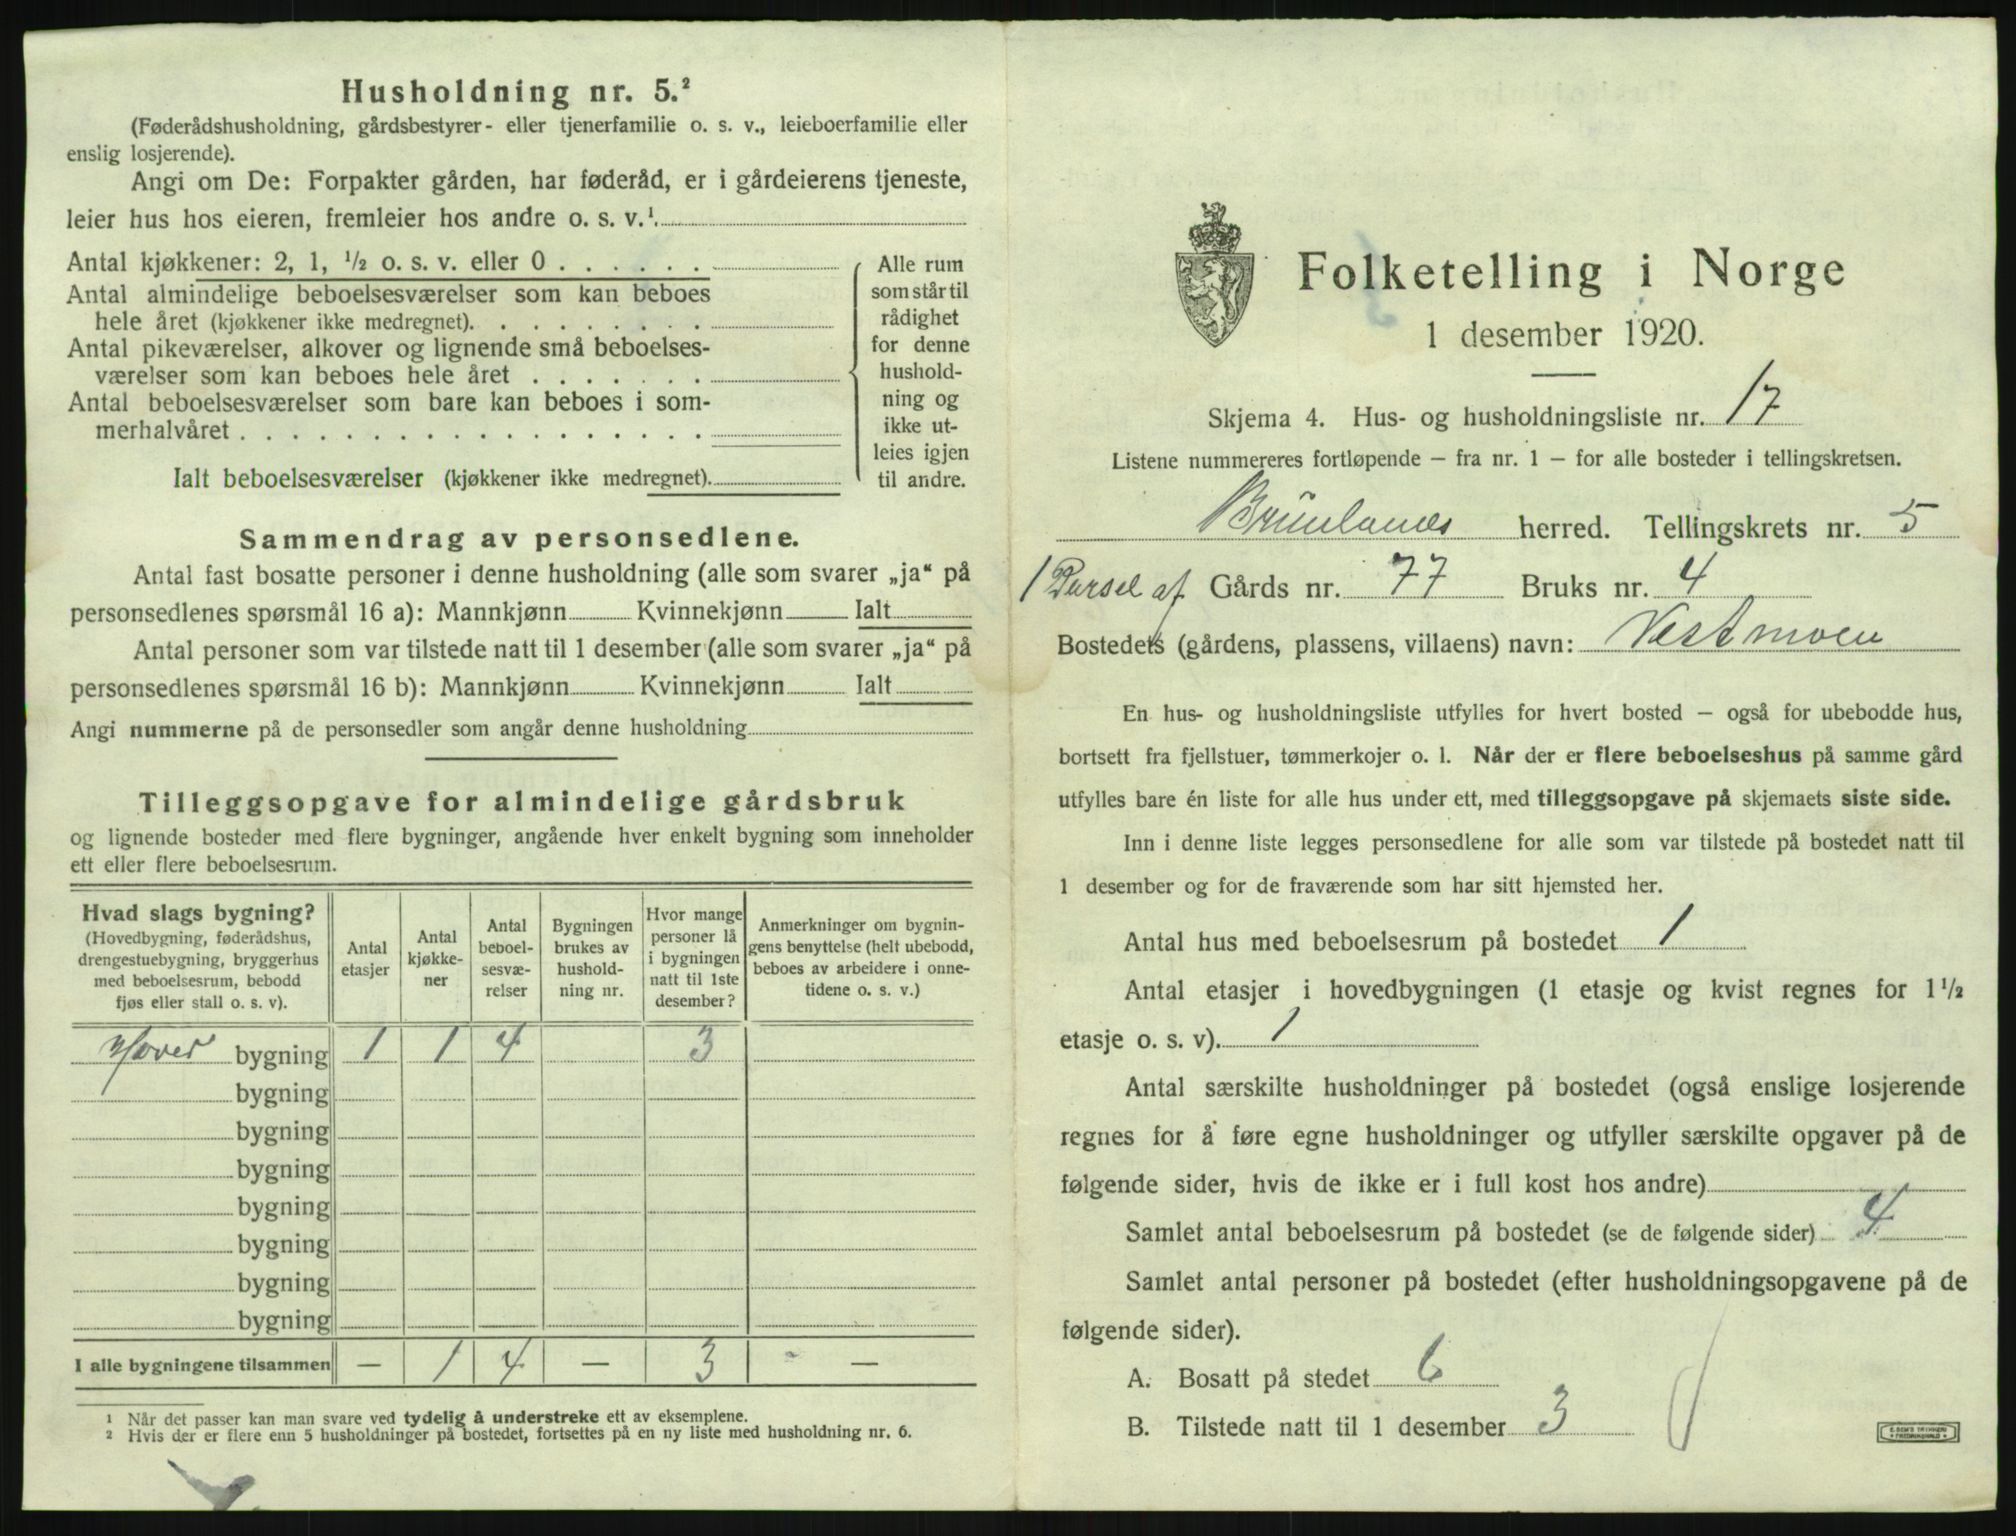 Husholdning nr. 5.²
(Føderådshusholdning, gårdsbestyrer- eller tjenerfamilie o. s. v., leieboerfamilie eller
enslig losjerende).
Angi om De: Forpakter gården, har føderåd, er i gårdeierens tjeneste,
leier hus hos eieren, fremleier hos andre o. s. v.¹.
Antal kjøkkener: 2, 1, ½ o. s. v. eller 0 . . . . . .
Antal almindelige beboelsesværelser som kan beboes
hele året (kjøkkener ikke medregnet). . . . . . . . .
Antal pikeværelser, alkover og lignende små beboelses-
værelser som kan beboes hele året . . . . . . .
Antal beboelsesværelser som bare kan beboes i som-
merhalvåret . . . . . . . . . . . . . . . . . .
Ialt beboelsesværelser (kjøkkener ikke medregnet).
Alle rum
som står til
rådighet
for denne
hushold-
ning og
ikke ut-
leies igjen
til andre.
Sammendrag av personsedlene.
Antal fast bosatte personer i denne husholdning (alle som svarer „ja“ på
personsedlenes spørsmål 16 a): Mannkjønn Kvinnekjønn Ialt
Antal personer som var tilstede natt til 1 desember (alle som svarer „ja“ på
personsedlenes spørsmål 16 b): Mannkjønn Kvinnekjønn Ialt
Angi nummerne på de personsedler som angår denne husholdning
Tilleggsopgave for almindelige gårdsbruk
og lignende bosteder med flere bygninger, angående hver enkelt bygning som inneholder
ett eller flere beboelsesrum.
Hvad slags bygning?
(Hovedbygning, føderådshus,
drengestuebygning, bryggerhus
med beboelsesrum, bebodd
fjøs eller stall o. s. v).
Antal
etasjer
Antal
kjøkke-
ner
Antal
beboel-
sesvæ-
relser
Bygningen
brukes av
hushold-
ning nr.
Hvor mange
personer lå
i bygningen
natt til 1ste
desember?
Anmerkninger om bygnin-
gens benyttelse (helt ubebodd,
beboes av arbeidere i onne-
tidene o. s. v.)
Hoved bygning 1 1 4 3
bygning
bygning
bygning
bygning
bygning
bygning
bygning
I alle bygningene tilsammen — 1 4 — 3 —
¹ Når det passer kan man svare ved tydelig å understreke ett av eksemplene.
² Hvis der er flere enn 5 husholdninger på bostedet, fortsettes på en ny liste med husholdning nr. 6.
Folketelling i Norge
1 desember 1920.
Skjema 4. Hus- og husholdningsliste nr. 17
Listene nummereres fortløpende – fra nr. 1 – for alle bosteder i tellingskretsen.
Brunlanes herred. Tellingskrets nr. 5
1 Parsel af Gårds nr. 77 Bruks nr. 4
Bostedets (gårdens, plassens, villaens) navn: Vestmoen
En hus- og husholdningsliste utfylles for hvert bosted – også for ubebodde hus,
bortsett fra fjellstuer, tømmerkojer o. l. Når der er flere beboelseshus på samme gård
utfylles bare én liste for alle hus under ett, med tilleggsopgave på skjemaets siste side.
Inn i denne liste legges personsedlene for alle som var tilstede på bostedet natt til
1 desember og for de fraværende som har sitt hjemsted her.
Antal hus med beboelsesrum på bostedet 1
Antal etasjer i hovedbygningen (1 etasje og kvist regnes for 1½
etasje o. s. v). 1
Antal særskilte husholdninger på bostedet (også enslige losjerende
regnes for å føre egne husholdninger og utfyller særskilte opgaver på de
følgende sider, hvis de ikke er i full kost hos andre)
Samlet antal beboelsesrum på bostedet (se de følgende sider) 4
Samlet antal personer på bostedet (efter husholdningsopgavene på de
følgende sider).
A. Bosatt på stedet 6
B. Tilstede natt til 1 desember 3